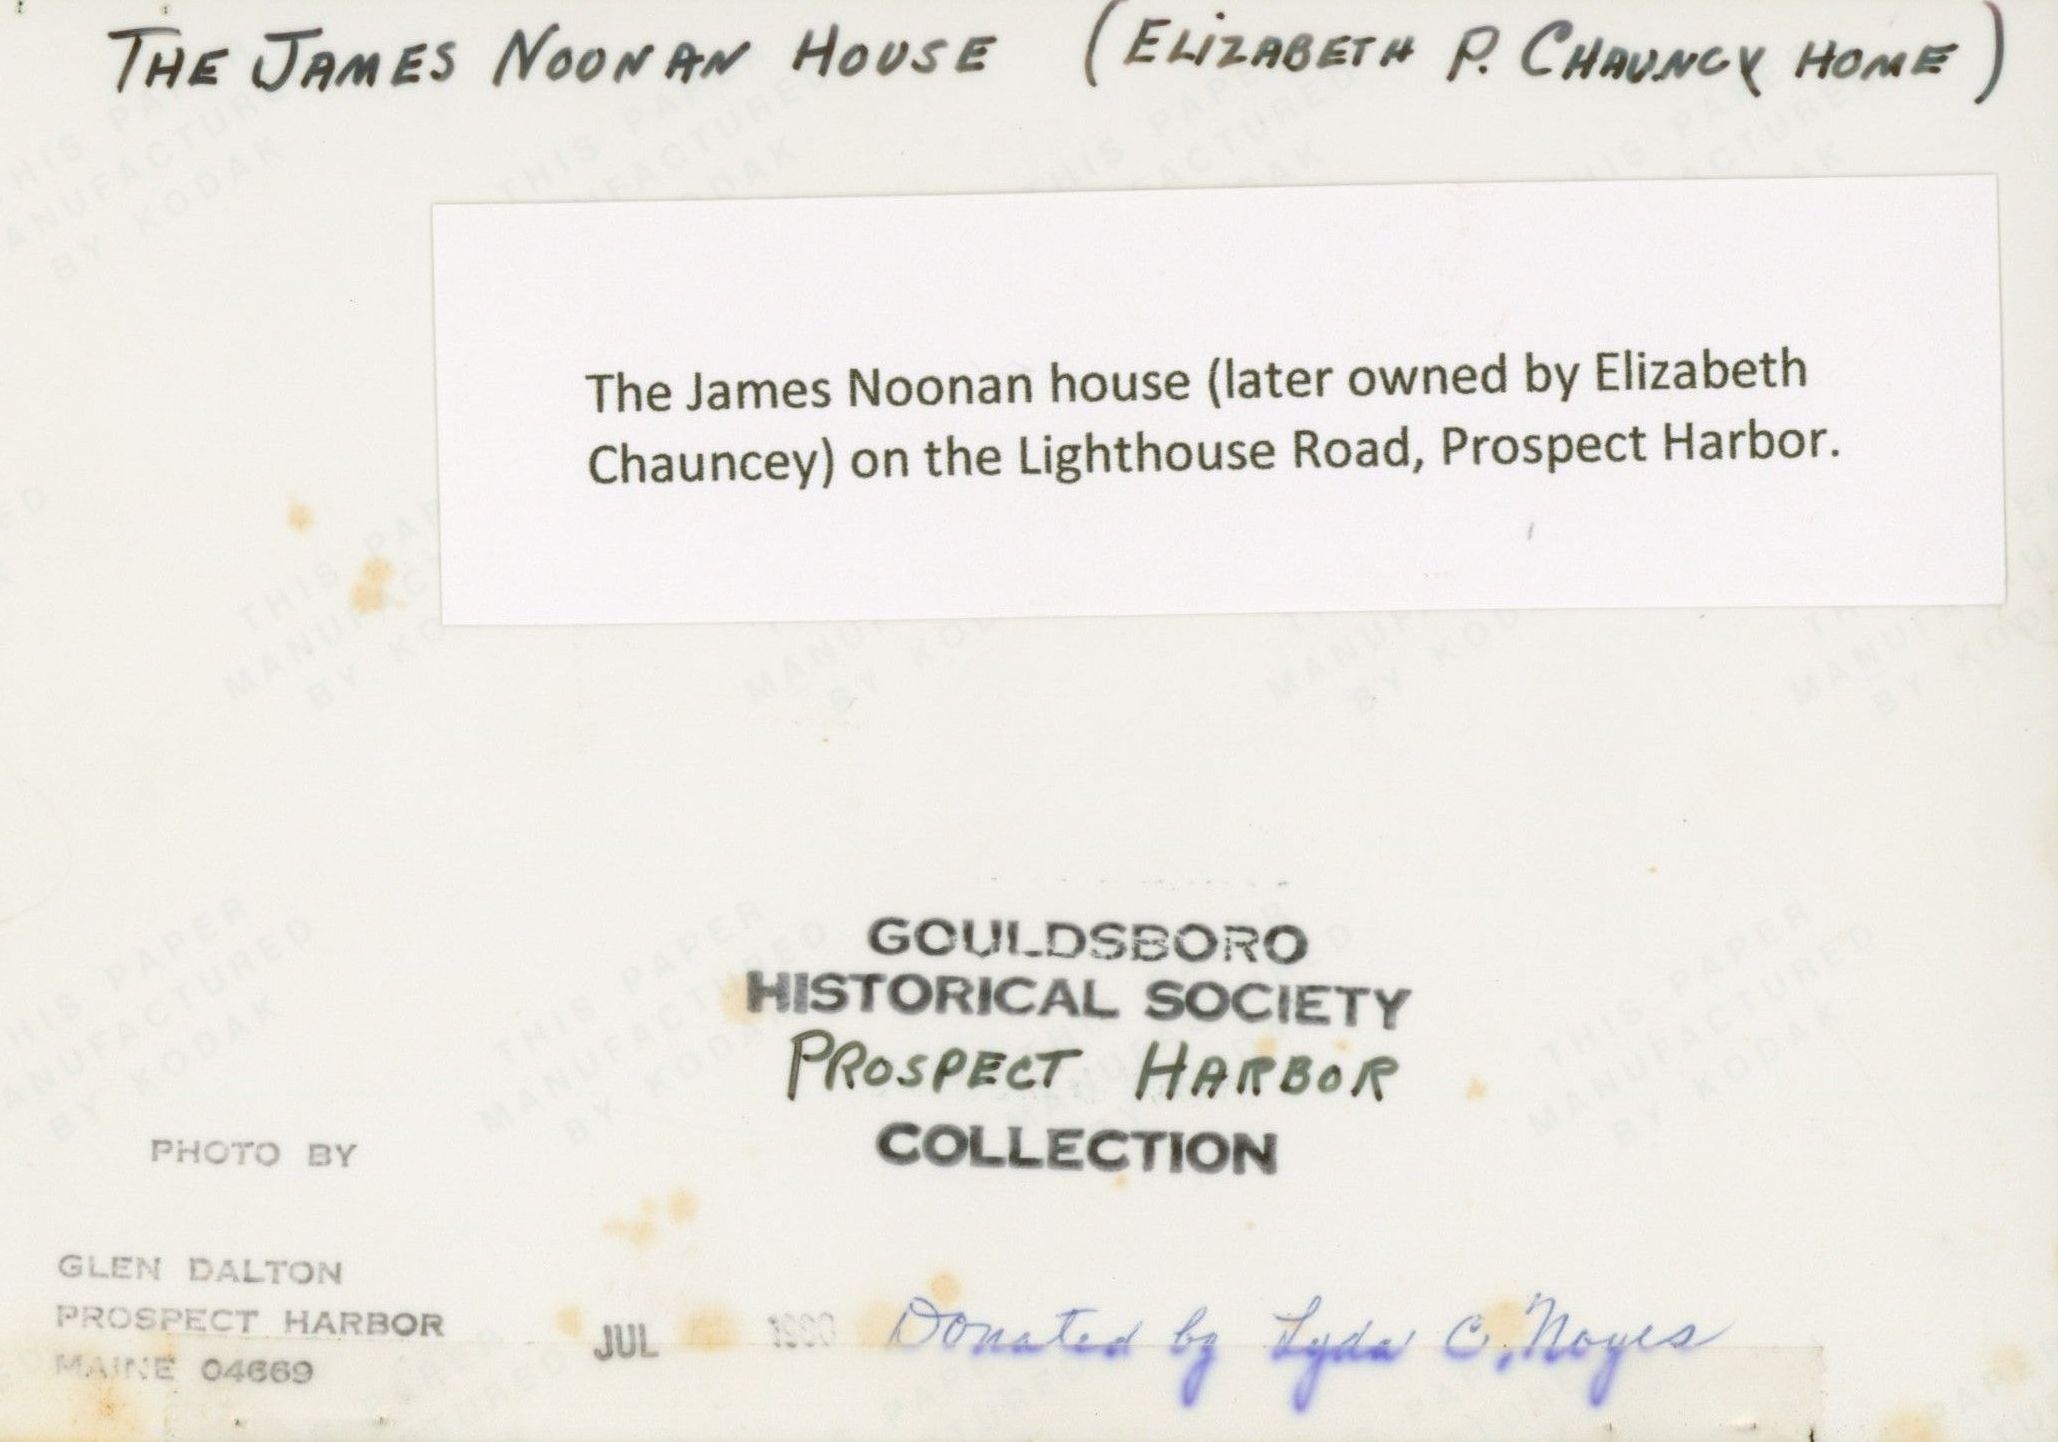 THE JAMES NOONAN HOUSE (ELIZABETH P. CHAUNCY HOME)
The James Noonan house (later owned by Elizabeth
Chauncey) on the Lighthouse Road, Prospect Harbor.
GOULDSBORO
HISTORICAL SOCIETY
PROSPECT HARBOR
COLLECTION
PHOTO BY
GLEN DALTON
PROSPECT HARBOR
MAINE 04669
JUL
Donated by Lyda C. Noyes
THIS PAPER
MANUFACTURED
BY KODAK